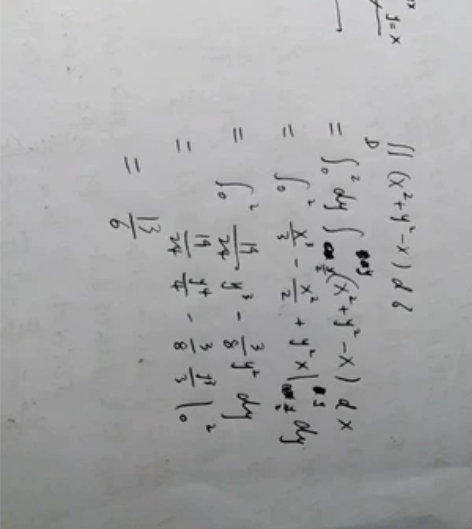 y = x
∬_D (x² + y² - x) dδ
= ∫₀² dy ∫_{y/2}^{y} (x² + y² - x) dx
= ∫₀² x³/3 - x²/2 + y²x |_{y/2}^{y} dy
= ∫₀² 19/24 y³ - 3/8 y² dy
= 19/24 y⁴/4 - 3/8 y³/3 |₀²
= 13/6